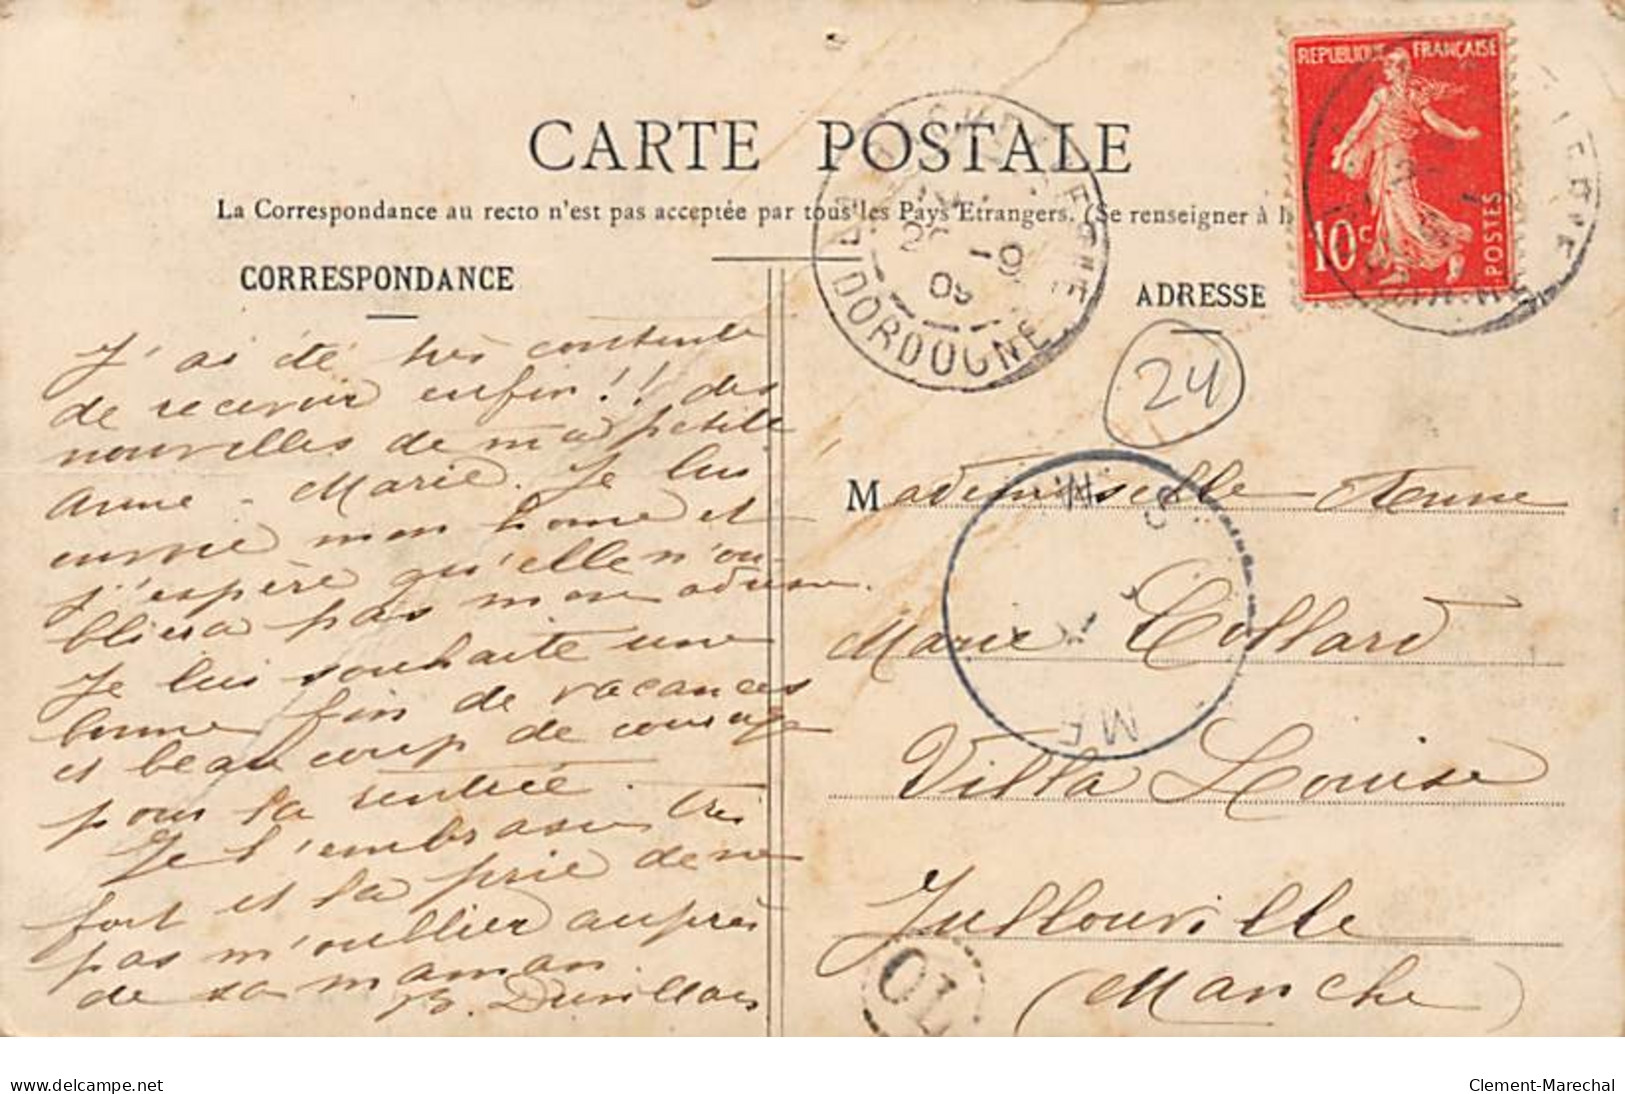 CARTE POSTALE
La Correspondance au recto n'est pas acceptée par tous les Pays Etrangers. (Se renseigner à
CORRESPONDANCE
J'ai été très contente
de recevoir enfin!! des
nouvelles de ma petite
Anne-Marie. Je lui
envoie mon home et
j'espère qu'elle n'ou-
bliera pas mon adresse.
Je lui souhaite une
bonne fin de vacances
et beaucoup de courage
pour la rentrée.
Je l'embrasse très
fort et la prie de ne
pas m'oublier auprès
de sa maman.
REPUBLIQUE FRANÇAISE
10c
POSTES
DORDOGNE
ADRESSE
24
Mademoiselle Anne
Marie Collard
Villa Louise
Jullouville
(Manche)
OL
delcampe.net
Clement-Marechal